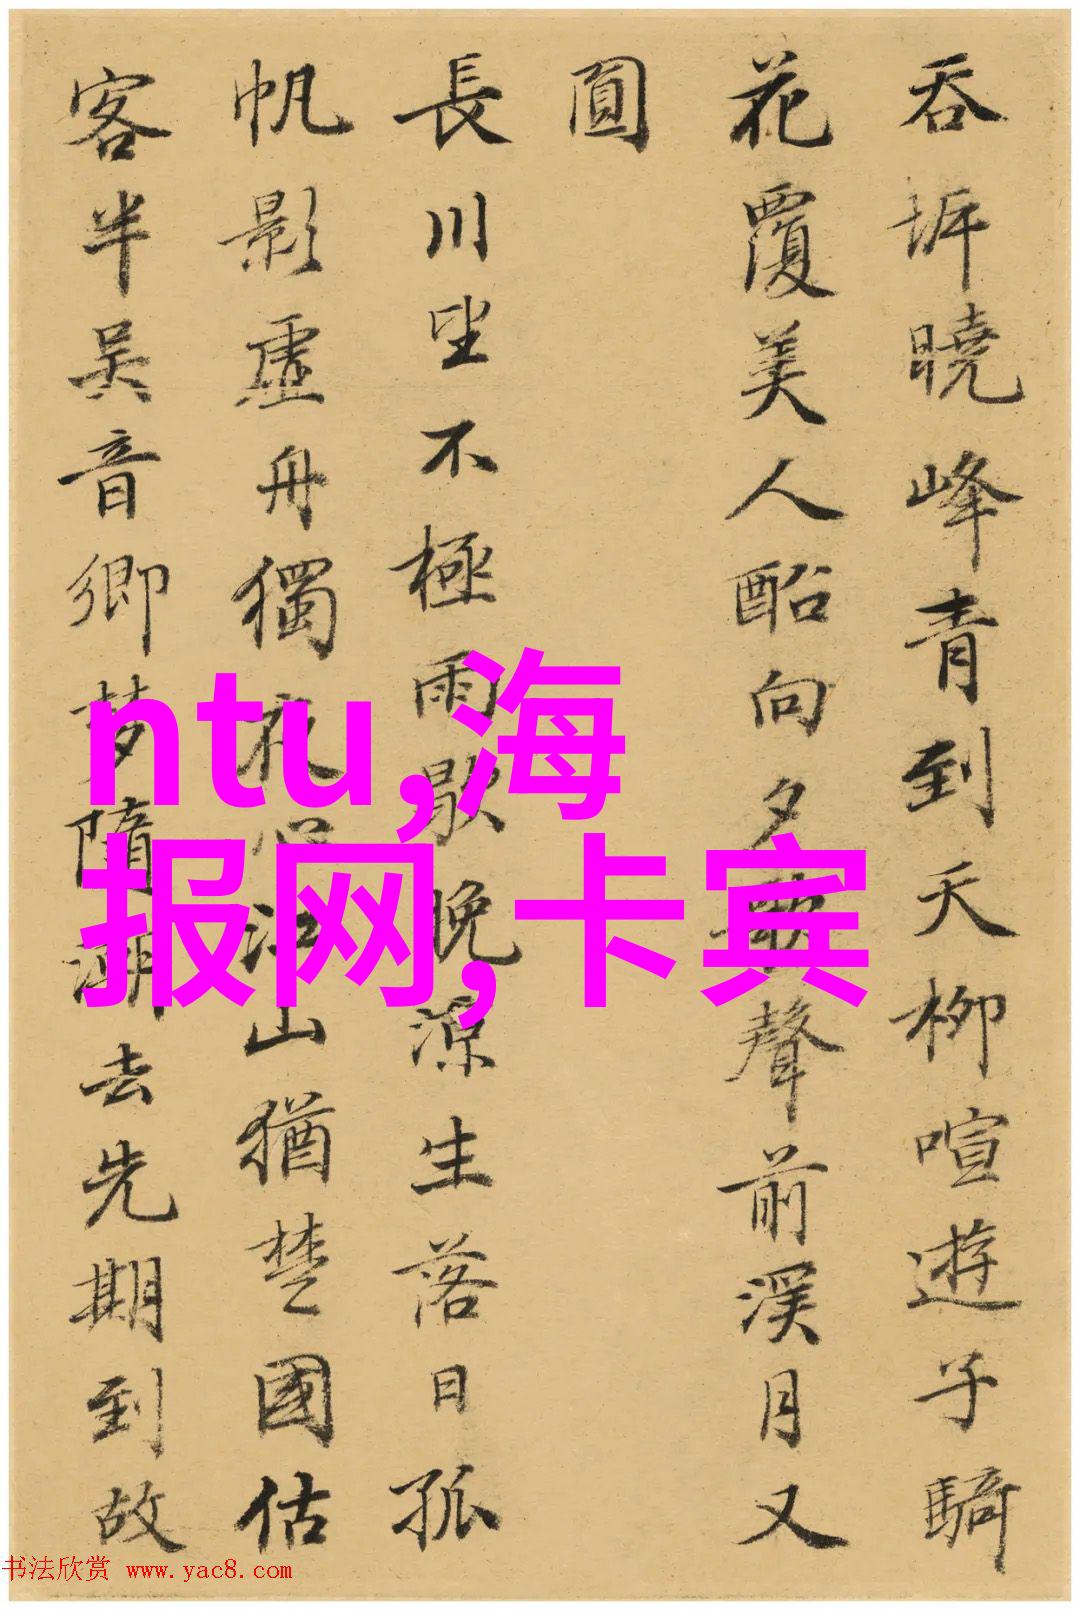 吞圻曉峰青到天柳喧遊子騎
花覆美人酩向夕聲前溪月又
圓
長川坐不極雨歇晚涼生落日孤
帆影虛舟獨夜江山猶楚國估
客半吳音鄉夢隨潮去先期到故
ntu,海
报网,卡宾
书法欣赏 www.yac8.com